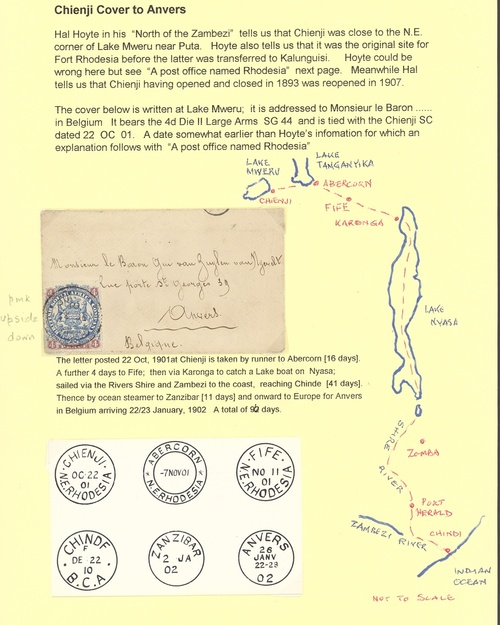 Chienji Cover to Anvers
Hal Hoyte in his "North of the Zambezi" tells us that Chienji was close to the N.E.
corner of Lake Mweru near Puta. Hoyte also tells us that it was the original site for
Fort Rhodesia before the latter was transferred to Kalunguisi. Hoyte could be
wrong here but see "A post office named Rhodesia" next page. Meanwhile Hal
tells us that Chienji having opened and closed in 1893 was reopened in 1907.
The cover below is written at Lake Mweru; it is addressed to Monsieur le Baron ......
in Belgium It bears the 4d Die II Large Arms SG 44 and is tied with the Chienji SC
dated 22 OC 01. A date somewhat earlier than Hoyte's infomation for which an
explanation follows with "A post office named Rhodesia"
LAKE
MWERU
LAKE
TANGANYIKA
CHIENJI
ABERCORN
FIFE
KARONGA
LAKE
NYASA
Monsieur le Baron Gui van Zuylen van
Rue porte St Georges 39
Anvers
Belgique.
pmk
upside
down
The letter posted 22 Oct, 1901at Chienji is taken by runner to Abercorn [16 days].
A further 4 days to Fife; then via Karonga to catch a Lake boat on Nyasa;
sailed via the Rivers Shire and Zambezi to the coast, reaching Chinde [41 days].
Thence by ocean steamer to Zanzibar [11 days] and onward to Europe for Anvers
in Belgium arriving 22/23 January, 1902 A total of 92 days.
SHIRE
RIVER
ZOMBA
PORT
HERALD
ZAMBEZI RIVER
CHINDI
INDIAN
OCEAN
NOT TO SCALE
CHIENJI
OC 22
01
N.E.RHODESIA
ABERCORN
-7NOV01
N.E.RHODESIA
FIFE
NO 11
01
N.E.RHODESIA
CHINDE
F
DE 22
10
B.C.A
ZANZIBAR
2 JA
02
ANVERS
26
JANV
22-23
02